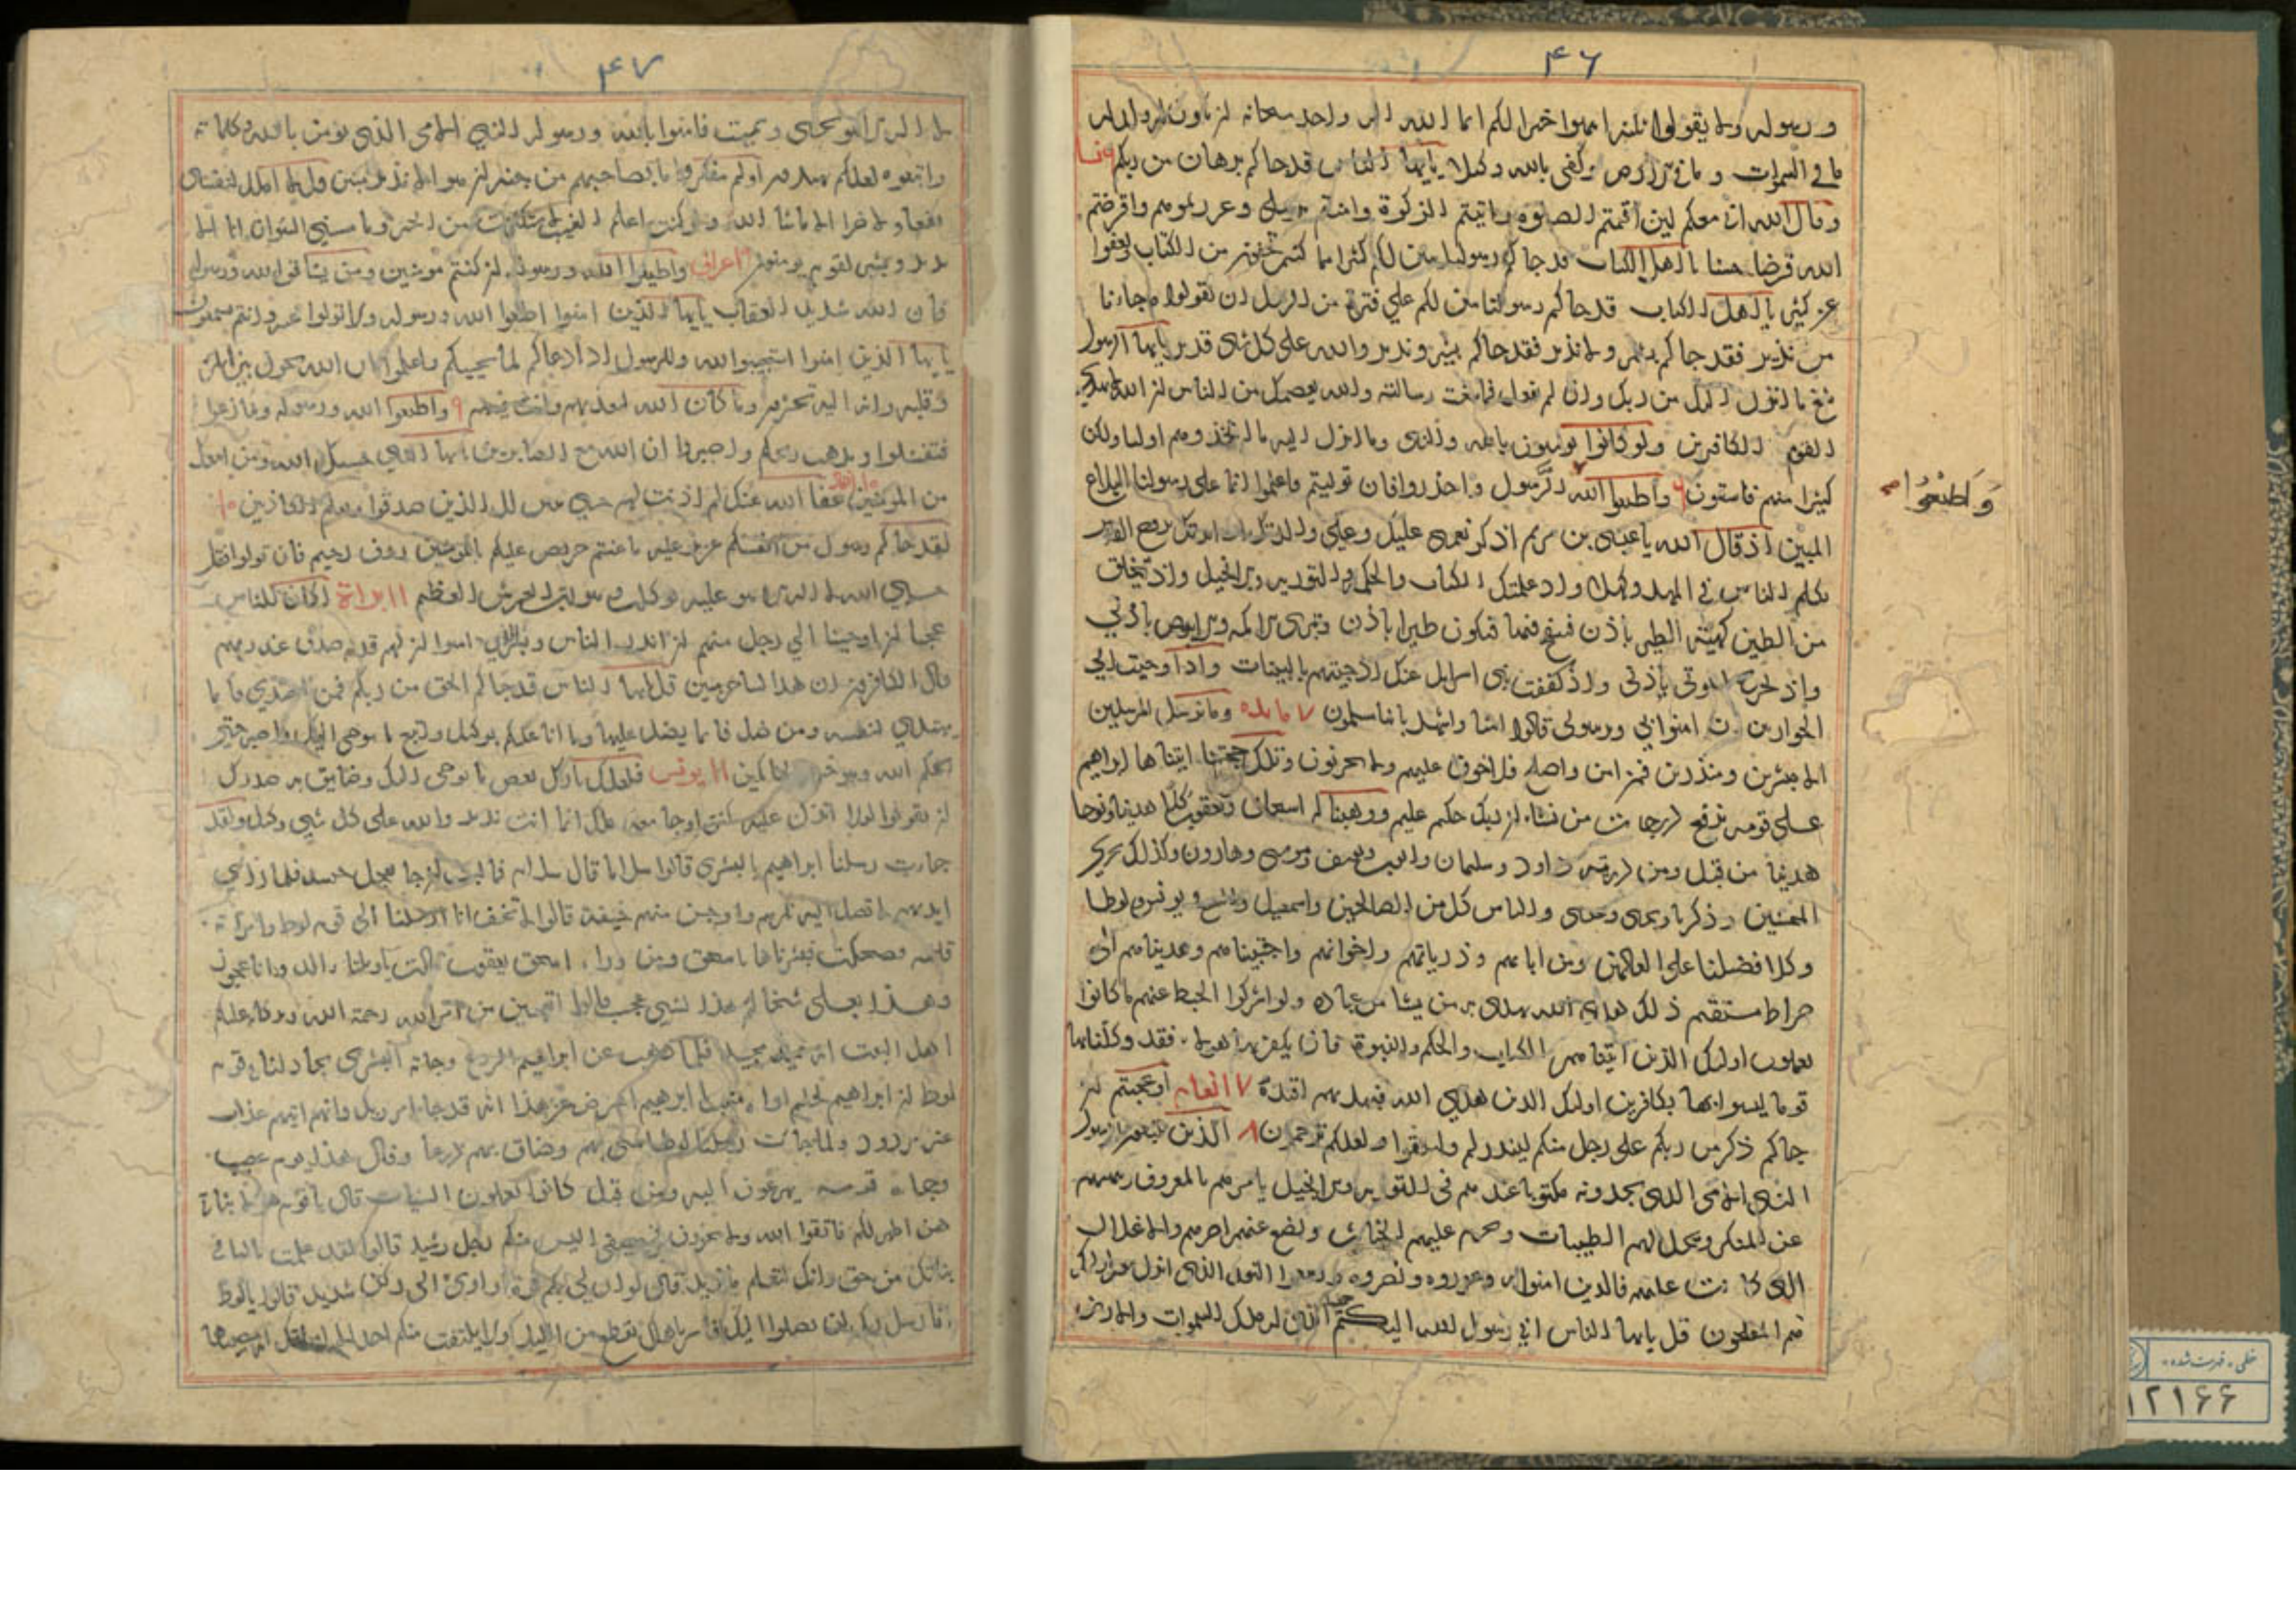 ۴۶
ورسوله ولا يقولوا ثلثة انتهوا خيرا لكم انما الله اله واحد سبحانه ان يكون له ولد له
ما في السموات وما في الارض وكفى بالله وكيلا يايها الناس قد جاكم برهان من ربكم
وقال الله اني معكم لين اقمتم الصلوة واتيتم الزكوة وامنتم برسلي وعزرتموهم واقرضتم
الله قرضا حسنا يا اهل الكتاب قد جاكم رسولنا يبين لكم كثيرا مما كنتم تخفون من الكتاب ويعفوا
عن كثير يا اهل الكتاب قد جاكم رسولنا يبين لكم علي فترة من الرسل ان تقولوا ما جاءنا
من بشير ولا نذير فقد جاكم بشير ونذير والله على كل شي قدير يايها الرسول
بلغ ما انزل اليك من ربك وان لم تفعل فما بلغت رسالته والله يعصمك من الناس ان الله لا يهدي
القوم الكافرين ولو كانوا يومنون بالله والنبي وما انزل اليه ما اتخذوهم اوليا ولكن
كثيرا منهم فاسقون واطيعوا الله الرسول واحذروا فان توليتم فاعلموا انما على رسولنا البلاغ
واطيعوا
المبين اذ قال الله يا عيسى بن مريم اذكر نعمتي عليك وعلي والدتك اذ ايدتك بروح القدس
تكلم الناس في المهد وكهلا واذ علمتك الكتاب والحكمة والتورية والانجيل واذ تخلق
من الطين كهيئة الطير باذن فتنفخ فيها فتكون طيرا باذن وتبرى الاكمه والابرص باذني
واذ تخرج الموتى باذني واذ كففت بني اسرايل عنك اذ جيتهم بالبينات واذ اوحيت الي
الحوارين ان امنوا بي وبرسولي قالوا امنا واشهد باننا مسلمون ٧ مايده وما نرسل المرسلين
الا مبشرين ومنذرين فمن امن واصلح فلا خوف عليهم ولا يحزنون وتلك حجتنا اتيناها ابراهيم
على قومه نرفع درجات من نشاء ان ربك حكيم عليم ووهبنا له اسحاق ويعقوب كلا هدينا ونوحا
هدينا من قبل ومن ذريته داود وسليمان وايوب ويوسف وموسى وهارون وكذلك نجزي
المحسنين وزكريا ويحيى وعيسى والياس كل من الصالحين واسمعيل واليسع ويونس ولوطا
وكلا فضلنا على العالمين ومن ابايهم وذرياتهم واخوانهم واجتبيناهم وهديناهم الى
صراط مستقيم ذلك هدى الله يهدي به من يشا من عباده ولو اشركوا لحبط عنهم ما كانوا
يعملون اوليك الذين اتيناهم الكتاب والحكم والنبوة فان يكفر بها هولاء فقد وكلنا بها
قوما ليسوا بها بكافرين اوليك الذين هدي الله فبهديهم اقتده ٧ انعام اوعجبتم ان
جاكم ذكر من ربكم على رجل منكم لينذركم ولتتقوا ولعلكم ترحمون ٨ الذين يتبعون الرسول
النبي الامي الذي يجدونه مكتوبا عندهم في التورية والانجيل يامرهم بالمعروف وينهيهم
عن المنكر ويحل لهم الطيبات ويحرم عليهم الخبائث ويضع عنهم اصرهم والاغلال
التي كانت عليهم فالذين امنوا به وعزروه ونصروه واتبعوا النور الذي انزل معه اوليك
هم المفلحون قل يايها الناس اني رسول الله اليكم جميعا الذي له ملك السموات والارض
۴۷
لا اله الا هو يحيى ويميت فامنوا بالله ورسوله النبي الامي الذي يؤمن بالله وكلماته
واتبعوه لعلكم تهتدون اولم يتفكروا ما بصاحبهم من جنة ان هو الا نذير مبين قل لا املك لنفسي
نفعا ولا ضرا الا ما شا الله ولو كنت اعلم الغيب لاستكثرت من الخير وما مسني السوء ان انا الا
نذير وبشير لقوم يومنون اعراف واطيعوا الله ورسوله ان كنتم مومنين ومن يشاقق الله ورسوله
فان الله شديد العقاب يايها الذين امنوا اطيعوا الله ورسوله ولا تولوا عنه وانتم تسمعون
يايها الذين امنوا استجيبوا لله وللرسول اذا دعاكم لما يحييكم واعلموا ان الله يحول بين المرء
وقلبه وانه اليه تحشرون وما كان الله ليعذبهم وانت فيهم ٩ واطيعوا الله ورسوله ولا تنازعوا
فتفشلوا وتذهب ريحكم واصبروا ان الله مع الصابرين يايها النبي حسبك الله ومن اتبعك
من المومنين ١٠ انفال عفا الله عنك لم اذنت لهم حتى يتبين لك الذين صدقوا وتعلم الكاذبين ١٠
لقد جاكم رسول من انفسكم عزيز عليه ما عنتم حريص عليكم بالمومنين روف رحيم فان تولوا فقل
حسبي الله لا اله الا هو عليه توكلت وهو رب العرش العظيم ١١ براءة اكان للناس
عجبا ان اوحينا الي رجل منهم ان انذر الناس وبشر الذين امنوا ان لهم قدم صدق عند ربهم
قال الكافرون ان هذا لساحر مبين قل يايها الناس قد جاكم الحق من ربكم فمن اهتدي فانما
يهتدي لنفسه ومن ضل فانما يضل عليها وما انا عليكم بوكيل واتبع ما يوحى اليك واصبر حتى
يحكم الله وهو خير الحاكمين ١١ يونس فلعلك تارك بعض ما يوحى اليك وضايق به صدرك
ان يقولوا لولا انزل عليه كنز او جا معه ملك انما انت نذير والله على كل شي وكيل ولقد
جاءت رسلنا ابراهيم بالبشرى قالوا سلاما قال سلام فما لبث ان جا بعجل حنيذ فلما راى
ايديهم لا تصل اليه نكرهم واوجس منهم خيفة قالوا لا تخف انا ارسلنا الى قوم لوط وامراته
قايمة فضحكت فبشرناها باسحق ومن وراء اسحق يعقوب قالت يا ويلتا االد وانا عجوز
وهذا بعلي شيخا ان هذا لشي عجيب قالوا اتعجبين من امر الله رحمة الله وبركاته عليكم
اهل البيت انه حميد مجيد فلما ذهب عن ابراهيم الروع وجاته البشرى يجادلنا في قوم
لوط ان ابراهيم لحليم اواه منيب يا ابرهيم اعرض عن هذا انه قد جا امر ربك وانهم اتيهم عذاب
غير مردود ولما جاءت رسلنا لوطا سيئ بهم وضاق بهم ذرعا وقال هذا يوم عصيب
وجاءه قومه يهرعون اليه ومن قبل كانوا يعملون السيئات قال يا قوم هولاء بناتي
هن اطهر لكم فاتقوا الله ولا تخزون في ضيفي اليس منكم رجل رشيد قالوا لقد علمت مالنا في
بناتك من حق وانك لتعلم ما نريد قال لو ان لي بكم قوة او اوى الى ركن شديد قالوا يالوط
انا رسل ربك لن يصلوا اليك فاسر باهلك بقطع من الليل ولا يلتفت منكم احد الا امراتك انه مصيبها
خطی - فهرست شده
۱۲۱۶۶